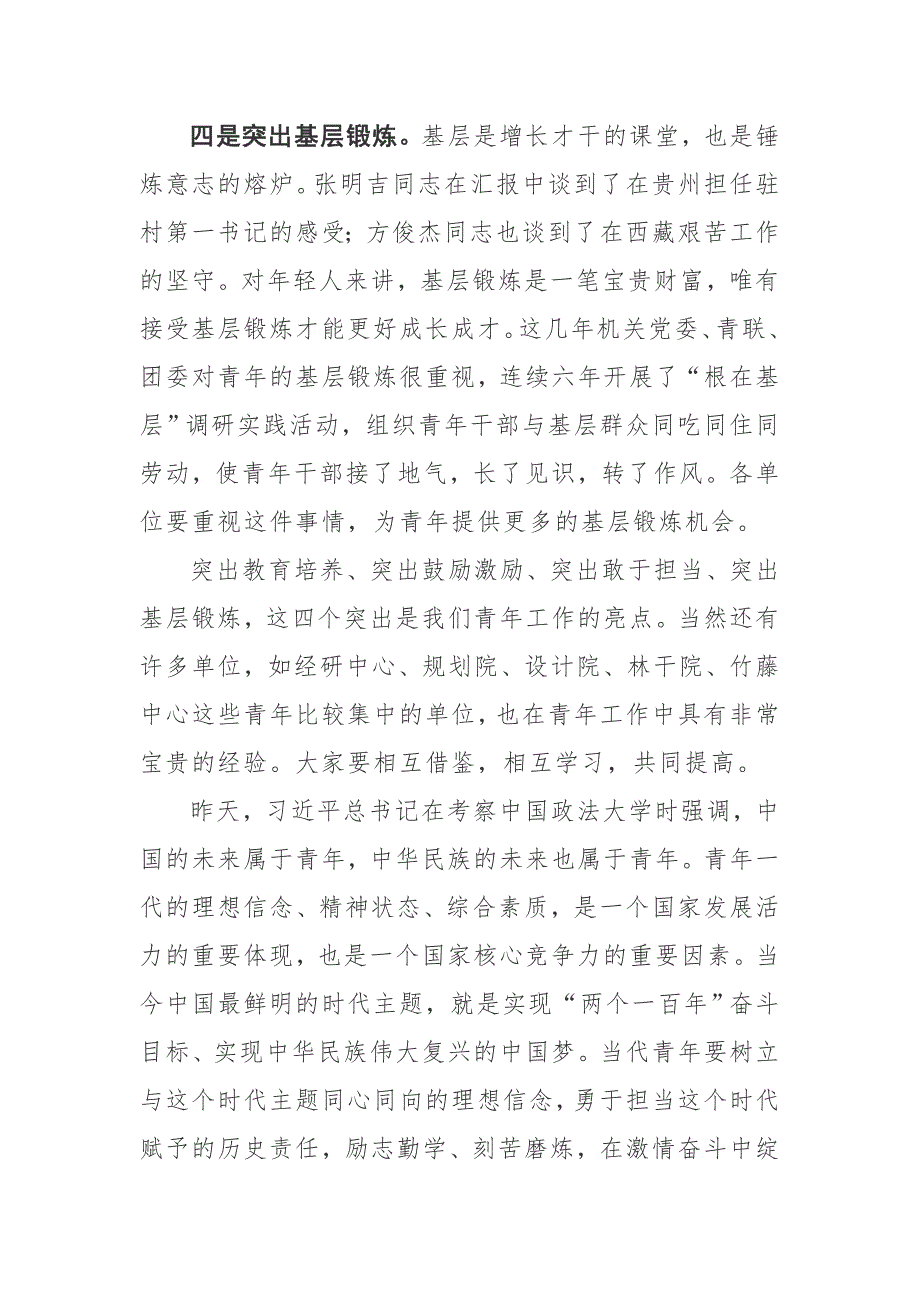 四是突出基层锻炼。基层是增长才干的课堂，也是锤
炼意志的熔炉。张明吉同志在汇报中谈到了在贵州担任驻
村第一书记的感受；方俊杰同志也谈到了在西藏艰苦工作
的坚守。对年轻人来讲，基层锻炼是一笔宝贵财富，唯有
接受基层锻炼才能更好成长成才。这几年机关党委、青联、
团委对青年的基层锻炼很重视，连续六年开展了“根在基
层”调研实践活动，组织青年干部与基层群众同吃同住同
劳动，使青年干部接了地气，长了见识，转了作风。各单
位要重视这件事情，为青年提供更多的基层锻炼机会。
突出教育培养、突出鼓励激励、突出敢于担当、突出
基层锻炼，这四个突出是我们青年工作的亮点。当然还有
许多单位，如经研中心、规划院、设计院、林干院、竹藤
中心这些青年比较集中的单位，也在青年工作中具有非常
宝贵的经验。大家要相互借鉴，相互学习，共同提高。
昨天，习近平总书记在考察中国政法大学时强调，中
国的未来属于青年，中华民族的未来也属于青年。青年一
代的理想信念、精神状态、综合素质，是一个国家发展活
力的重要体现，也是一个国家核心竞争力的重要因素。当
今中国最鲜明的时代主题，就是实现“两个一百年”奋斗
目标、实现中华民族伟大复兴的中国梦。当代青年要树立
与这个时代主题同心同向的理想信念，勇于担当这个时代
赋予的历史责任，励志勤学、刻苦磨炼，在激情奋斗中绽